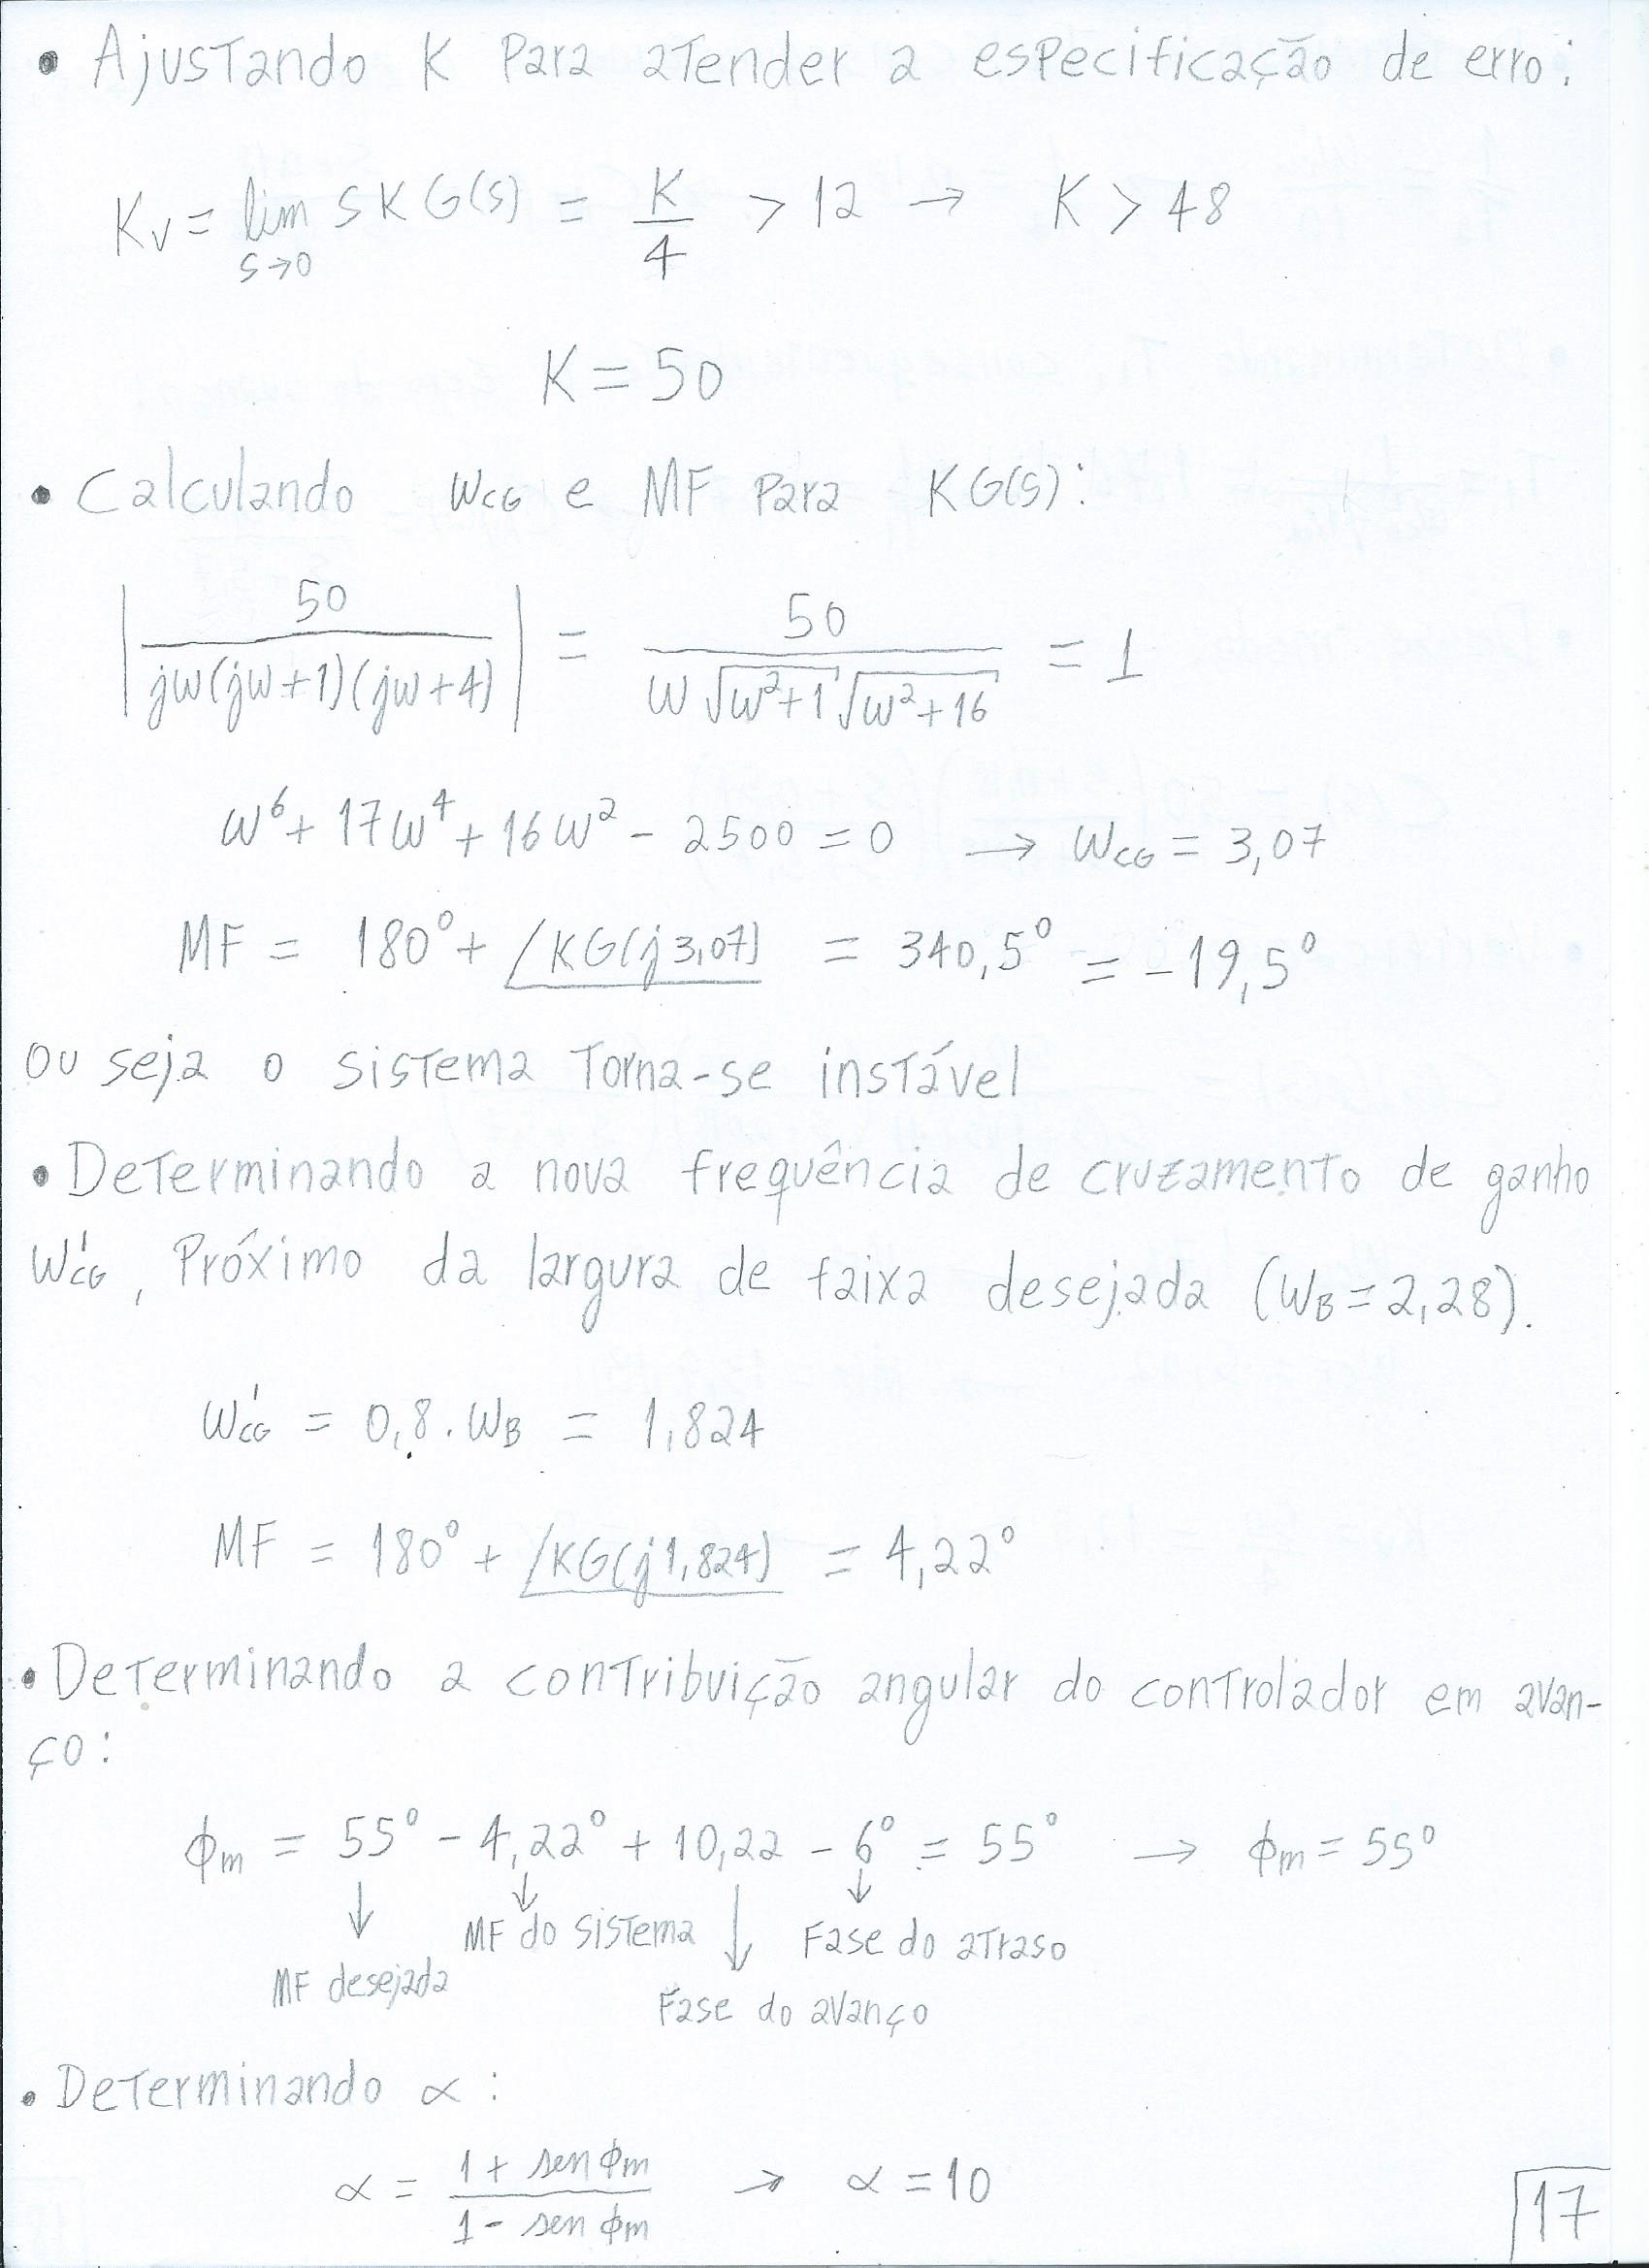 • Ajustando K para atender a especificação de erro:
Kv = lim s→0 S K G(s) = K/4 > 12 → K > 48
K = 50
• Calculando WCG e MF para KG(s):
|50 / jw(jw+1)(jw+4)| = 50 / w √w²+1 √w²+16 = 1
w⁶ + 17w⁴ + 16w² - 2500 = 0 → WCG = 3,07
MF = 180° + /KG(j3,07) = 340,5° = -19,5°
ou seja o sistema torna-se instável
• Determinando a nova frequência de cruzamento de ganho
W'CG, Próximo da largura de faixa desejada (WB = 2,28).
W'CG = 0,8 . WB = 1,824
MF = 180° + /KG(j1,824) = 4,22°
• Determinando a contribuição angular do controlador em avan-
ço:
ϕm = 55° - 4,22° + 10,22 - 6° = 55° → ϕm = 55°
↓ ↓ ↓ ↓
MF do sistema Fase do atraso
MF desejada Fase do avanço
• Determinando α:
α = 1 + sen ϕm / 1 - sen ϕm → α = 10
17